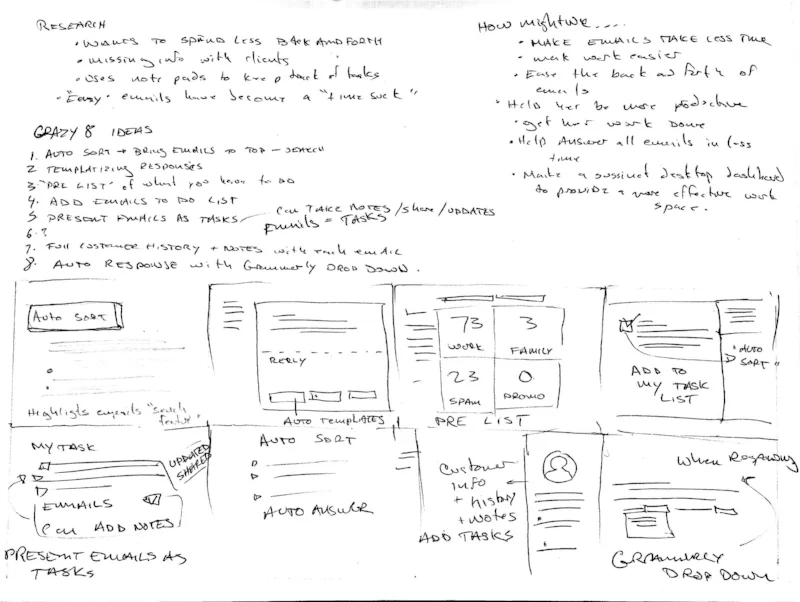 RESEARCH
• WANTS TO SPEND LESS BACK AND FORTH
• missing info with clients
• Uses note pads to keep track of tasks
• "Easy" emails have become a "time suck"
CRAZY 8 IDEAS
1. AUTO SORT → BRING EMAILS TO TOP – SEARCH
2 TEMPLATIZING RESPONSES
3 "PRE LIST" of what you have to do
4. ADD EMAILS TO DO LIST
5 PRESENT EMAILS AS TASKS — CAN TAKE NOTES / share / UPDATES
EMAILS = TASKS
6 ?
7. FULL CUSTOMER HISTORY + NOTES with each email
8. AUTO RESPONSE with Grammerly DROP DOWN.
How might we....
• MAKE EMAILS TAKE LESS TIME
• make work easier
• Ease the back and forth of
emails
• Help her be more productive
• get her work done
• Help Answer all emails in less
time
• Make a succinct desktop dashboard
to provide a more effective work
space.
Auto SORT
Highlights emails "search
feature"
REPLY
AUTO TEMPLATES
73
WORK
3
FAMILY
23
SPAM
0
PROMO
PRE LIST
ADD TO
MY TASK
LIST
"AUTO
SORT"
MY TASK
UPDATED
SHARED
EMAILS
Can ADD NOTES
PRESENT EMAILS AS
TASKS
AUTO SORT
AUTO ANSWER
Customer
info
+ history
+ Notes
ADD TASKS
When Responding
GRAMMERLY
DROP DOWN